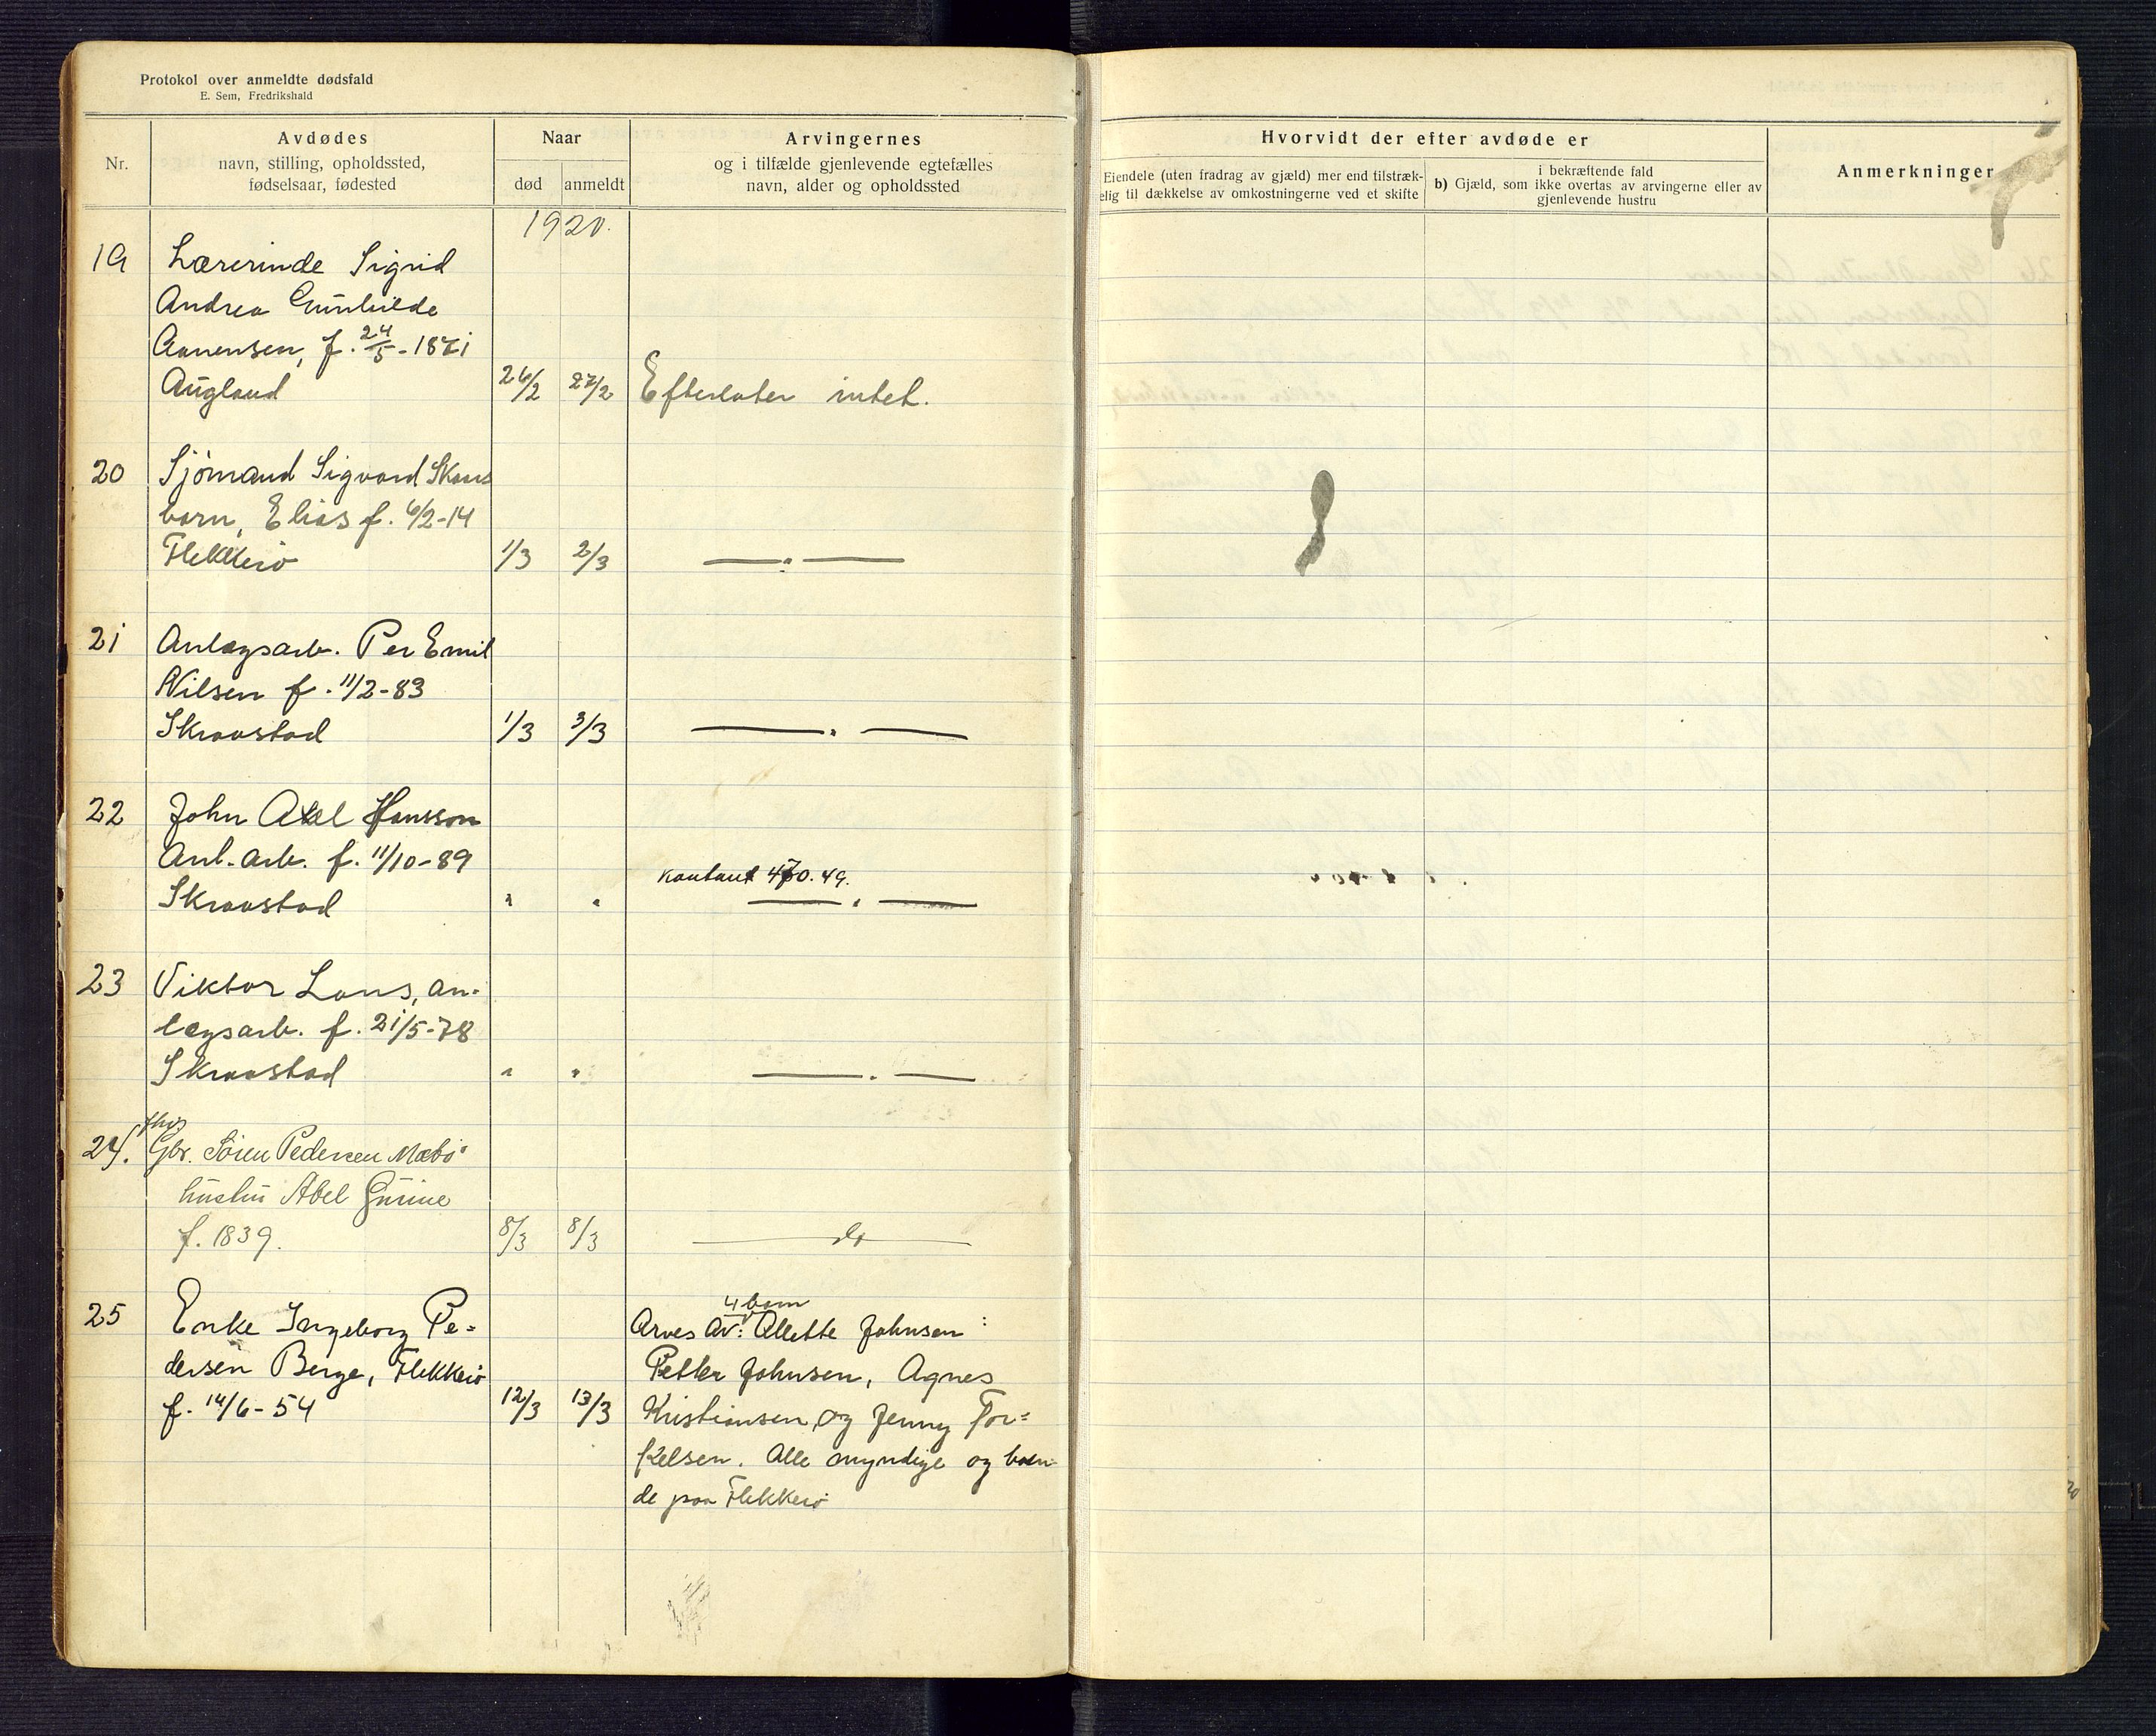 Protokol over anmeldte dødsfald
E. Sem, Fredrikshald
Nr.
Avdødes
navn, stilling, opholdssted,
fødselsaar, fødested
Naar
død
anmeldt
Arvingernes
og i tilfælde gjenlevende egtefælles
navn, alder og opholdssted
Hvorvidt der efter avdøde er
Eiendele (uten fradrag av gjæld) mer end tilstræk-
elig til dækkelse av omkostningerne ved et skifte
i bekræftende fald
b) Gjæld, som ikke overtas av arvingerne eller av
gjenlevende hustru
Anmerkninger
1920.
19 Lærerinde Sigrid
Andrea Gunhilde
Aanensen, f. 24/5-1871
Augland 26/2 27/2 Efterlater intet.
20 Sjömand Sigvard Skaus
barn, Elias f. 6/2-14
Flekkerö 1/3 2/3 — " —
21 Anlægsarb. Per Emil
Nilsen f. 11/2-83
Skraastad 1/3 3/3 — " —
22 John Axel Hansson
Anl. arb. f. 11/10-89
kontant 470.49.
Skraastad " " — " —
23 Viktor Laus, an-
lægsarb. f. 21/5-78
Skraastad " " — " —
24. Gbr. Sören Pedersen Mæbö
hustru Abel Gurine
f. 1839. 8/3 8/3 — do —
25 Enke Ingeborg Pe-
dersen Berge, Flekkerö
f. 14/6-54 12/3 13/3
4 barn
Arves av: Allette Johnsen
Petter Johnsen, Agnes
Kristiansen, og Jenny Tor-
kelsen. Alle myndige og boen-
de paa Flekkerö